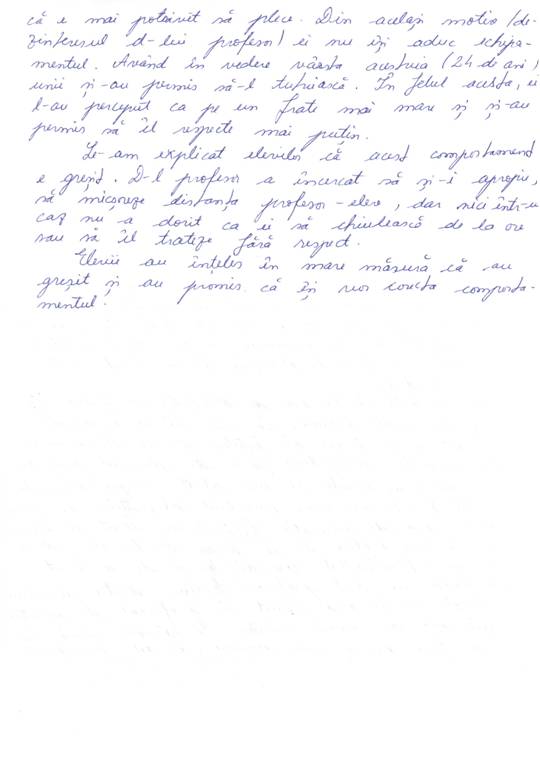 că e mai potrivit să plece. Din același motiv (de-
zinteresul d-lui profesor) ei nu își aduc echipa-
mentul. Având în vedere vârsta acestuia (24 de ani)
unii și-au permis să-l tutuiască. În felul acesta, ei
l-au perceput ca pe un frate mai mare și și-au
permis să îl respecte mai puțin.
Le-am explicat elevilor că acest comportament
e greșit. D-l profesor a încercat să și-i apropie,
să micșoreze distanța profesor-elev, dar nici într-un
caz nu a dorit ca ei să chiulească de la ore
sau să îl trateze fără respect.
Elevii au înțeles în mare măsură că au
greșit și au promis că își vor corecta comporta-
mentul.